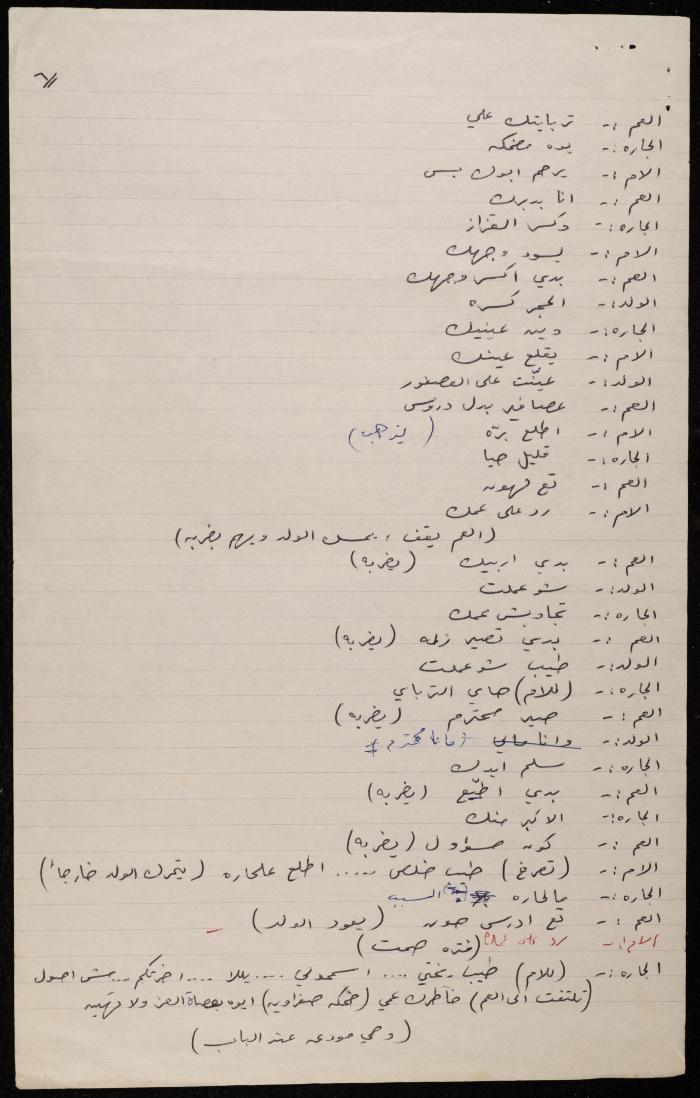 ٦//
العم :- تربايتك علي
الجاره :- يوه مضحكه
الام :- يرحم ابوك بس
العم :- انا بدبرك
الجاره :- وكسر القزاز
الام :- يسود وجهك
العم :- بدي اكسر وجهك
الولد :- الحجر كسره
الجاره :- وين عينيك
الام :- يقلع عينك
الولد :- عيّنت على العصفور
العم :- عصافير بدل دروس
الام :- اطلع برّه (يذهب)
الجاره :- قليل حيا
العم :- تع لهون
الام :- رد على عمك
(العم يقف ، يمسك الولد ويهم بضربه)
العم :- بدي اربيك (يضربه)
الولد :- شو عملت
الجاره :- تجاوبش عمك
العم :- بدي تصير زلمه (يضربه)
الولد :- طيب شو عملت
الجاره :- (للام) هاي الترباي
العم :- صير محترم (يضربه)
الولد :- وانا (مانا محترم)
الجاره :- سلم ايدك
العم :- بدي اطبّع (يضربه)
الجاره :- الاكبر منك
العم :- كون مسؤول (يضربه)
الام :- (تصرخ) طيب خلص ..... اطلع علحاره (يتحرك الولد خارجاً)
الجاره :- مالحاره السبب
العم :- تع ادرس هون (يعود الولد)
الام :- رد على عمك (فتره صمت)
الجاره :- (للام) طيب يختي .... اسمحولي .... يللا .... اخرتكم .. مش اصول
(تلتفت الى العم) خاطرك عمي (ضحكه صفراويه) ايوه بعصاة العز ولا تهينه
(وهي مودعه عند الباب)